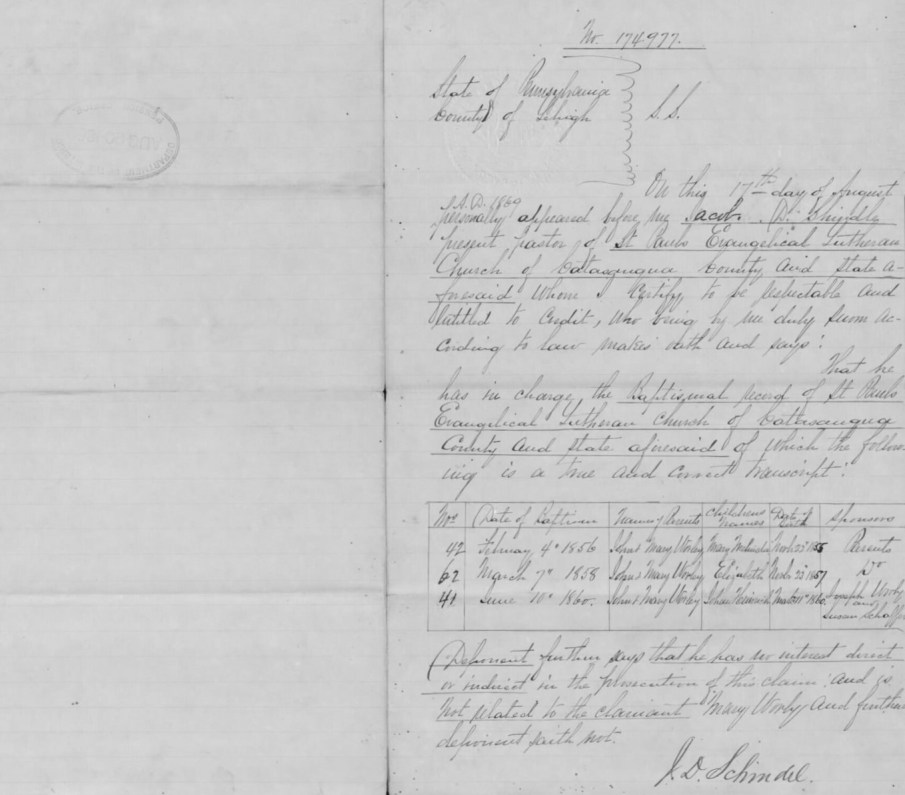 No. 174977.
State of Pennsylvania
County of Lehigh S.S.
On this 17th day of August
A.D. 1869
personally appeared before me Jacob D. Shindle
present pastor of St Pauls Evangelical Lutheran
Church of Catasauqua County and State a-
foresaid, whom I certify, to be respectable and
entitled to credit, who being by me duly sworn ac-
cording to law makes oath and says:
That he
has in charge, the Baptismal record of St Pauls
Evangelical Lutheran Church of Catasauqua
County and State aforesaid of which the follow-
ing is a true and correct transcript:
Nos Date of Baptism Parents Childrens Names Date of Birth Sponsors
42 February 4" 1856 John & Mary Worly Mary 1855 Parents
62 March 7" 1858 John & Mary Worly Elizabeth 1857 Do
41 June 10" 1860. John & Mary Worly 1860. Joseph Worly
and
Susan
Deponent further says that he has no interest direct
or indirect in the prosecution of this claim and is
not related to the claimant Mary Worly and further
deponent saith not.
J. D. Schindel.